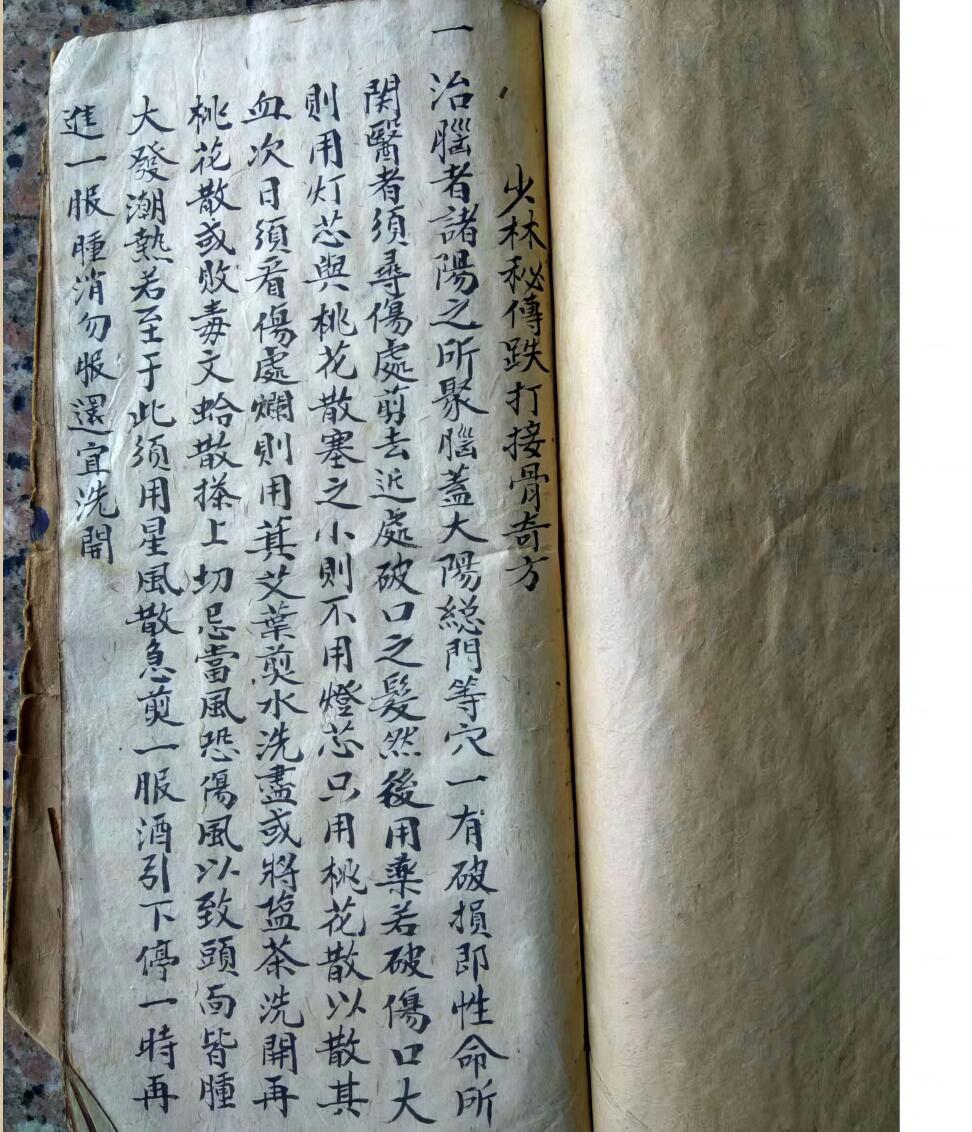 少林秘傳跌打接骨奇方
一治腦者諸陽之所聚腦蓋大陽総門等穴一有破損即性命所
関醫者須尋傷處剪去近處破口之髮然後用藥若破傷口大
則用灯芯與桃花散塞之小則不用燈芯只用桃花散以散其
血次日須看傷處爛則用萁艾葉煎水洗盡或將盐茶洗開再
桃花散或敗毒文蛤散搽上切忌當風恐傷風以致頭面皆腫
大發潮熱若至于此須用星風散急煎一服酒引下停一時再
進一服腫消勿服還宜洗開